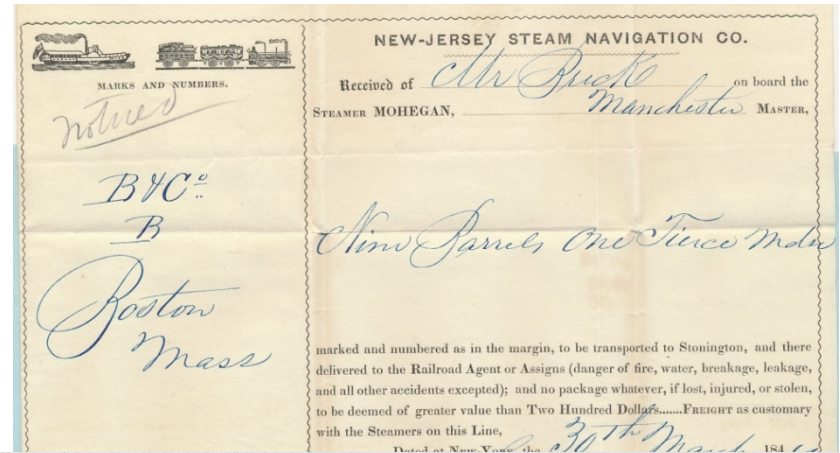 MARKS AND NUMBERS.
noticed
B & Co
B
Boston
Mass
NEW-JERSEY STEAM NAVIGATION CO.
Received of Mr Buck on board the
STEAMER MOHEGAN, Manchester MASTER,
Nine Barrels One Tierce Mdse
marked and numbered as in the margin, to be transported to Stonington, and there
delivered to the Railroad Agent or Assigns (danger of fire, water, breakage, leakage,
and all other accidents excepted); and no package whatever, if lost, injured, or stolen,
to be deemed of greater value than Two Hundred Dollars......FREIGHT as customary
with the Steamers on this Line,
Dated at New-York, the 30th March 184